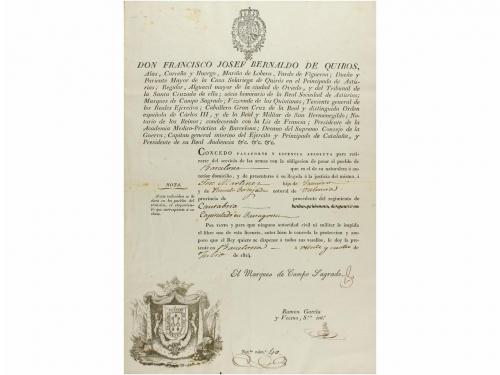 DON FRANCISCO JOSEF BERNALDO DE QUIROS,
Alas, Carreño y Huergo, Mariño de Lobera, Pardo de Figueroa; Dueño y
Pariente Mayor de la Casa Solariega de Quirós en el Principado de Astu-
rias; Regidor, Alguacil mayor de la ciudad de Oviedo, y del Tribunal de
la Santa Cruzada de ella; socio honorario de la Real Sociedad de Asturias;
Marques de Campo Sagrado; Vizconde de las Quintanas; Teniente general de
los Reales Exercitos; Caballero Gran Cruz de la Real y distinguida Orden
española de Carlos III, y de la Real y Militar de San Hermenegildo; No-
tario de los Reinos; condecorado con la Lis de Francia; Presidente de la
Academia Médico-Práctica de Barcelona; Decano del Supremo Consejo de la
Guerra; Capitan general interino del Exército y Principado de Cataluña, y
Presidente de su Real Audiencia &c. &c. &c.
CONCEDO PASAPORTE Y LICENCIA ABSOLUTA para reti-
rarse del servicio de las armas con la obligacion de pasar al pueblo de
Barcelona en el de su naturaleza ó an-
terior domicilio, y de presentarse á su llegada á la justicia del mismo, á
Josè Martinez hijo de
y de natural de Valencia
provincia de procedente del regimiento de
Cantabria
Capitulado en Tarragona
NOTA.
POR TANTO y para que ninguna autoridad civil ni militar le impida
el libre uso de esta licencia, antes bien le conceda la proteccion y am-
paro que el Rey quiere se dispense á todos sus vasallos, le doy la pre-
sente en Barcelona á veinte y cuatro de
Julio de 1815
El Marques de Campo Sagrado
Ramon García
y Vecino, S.rio int.º
Reg.do núm.º 490